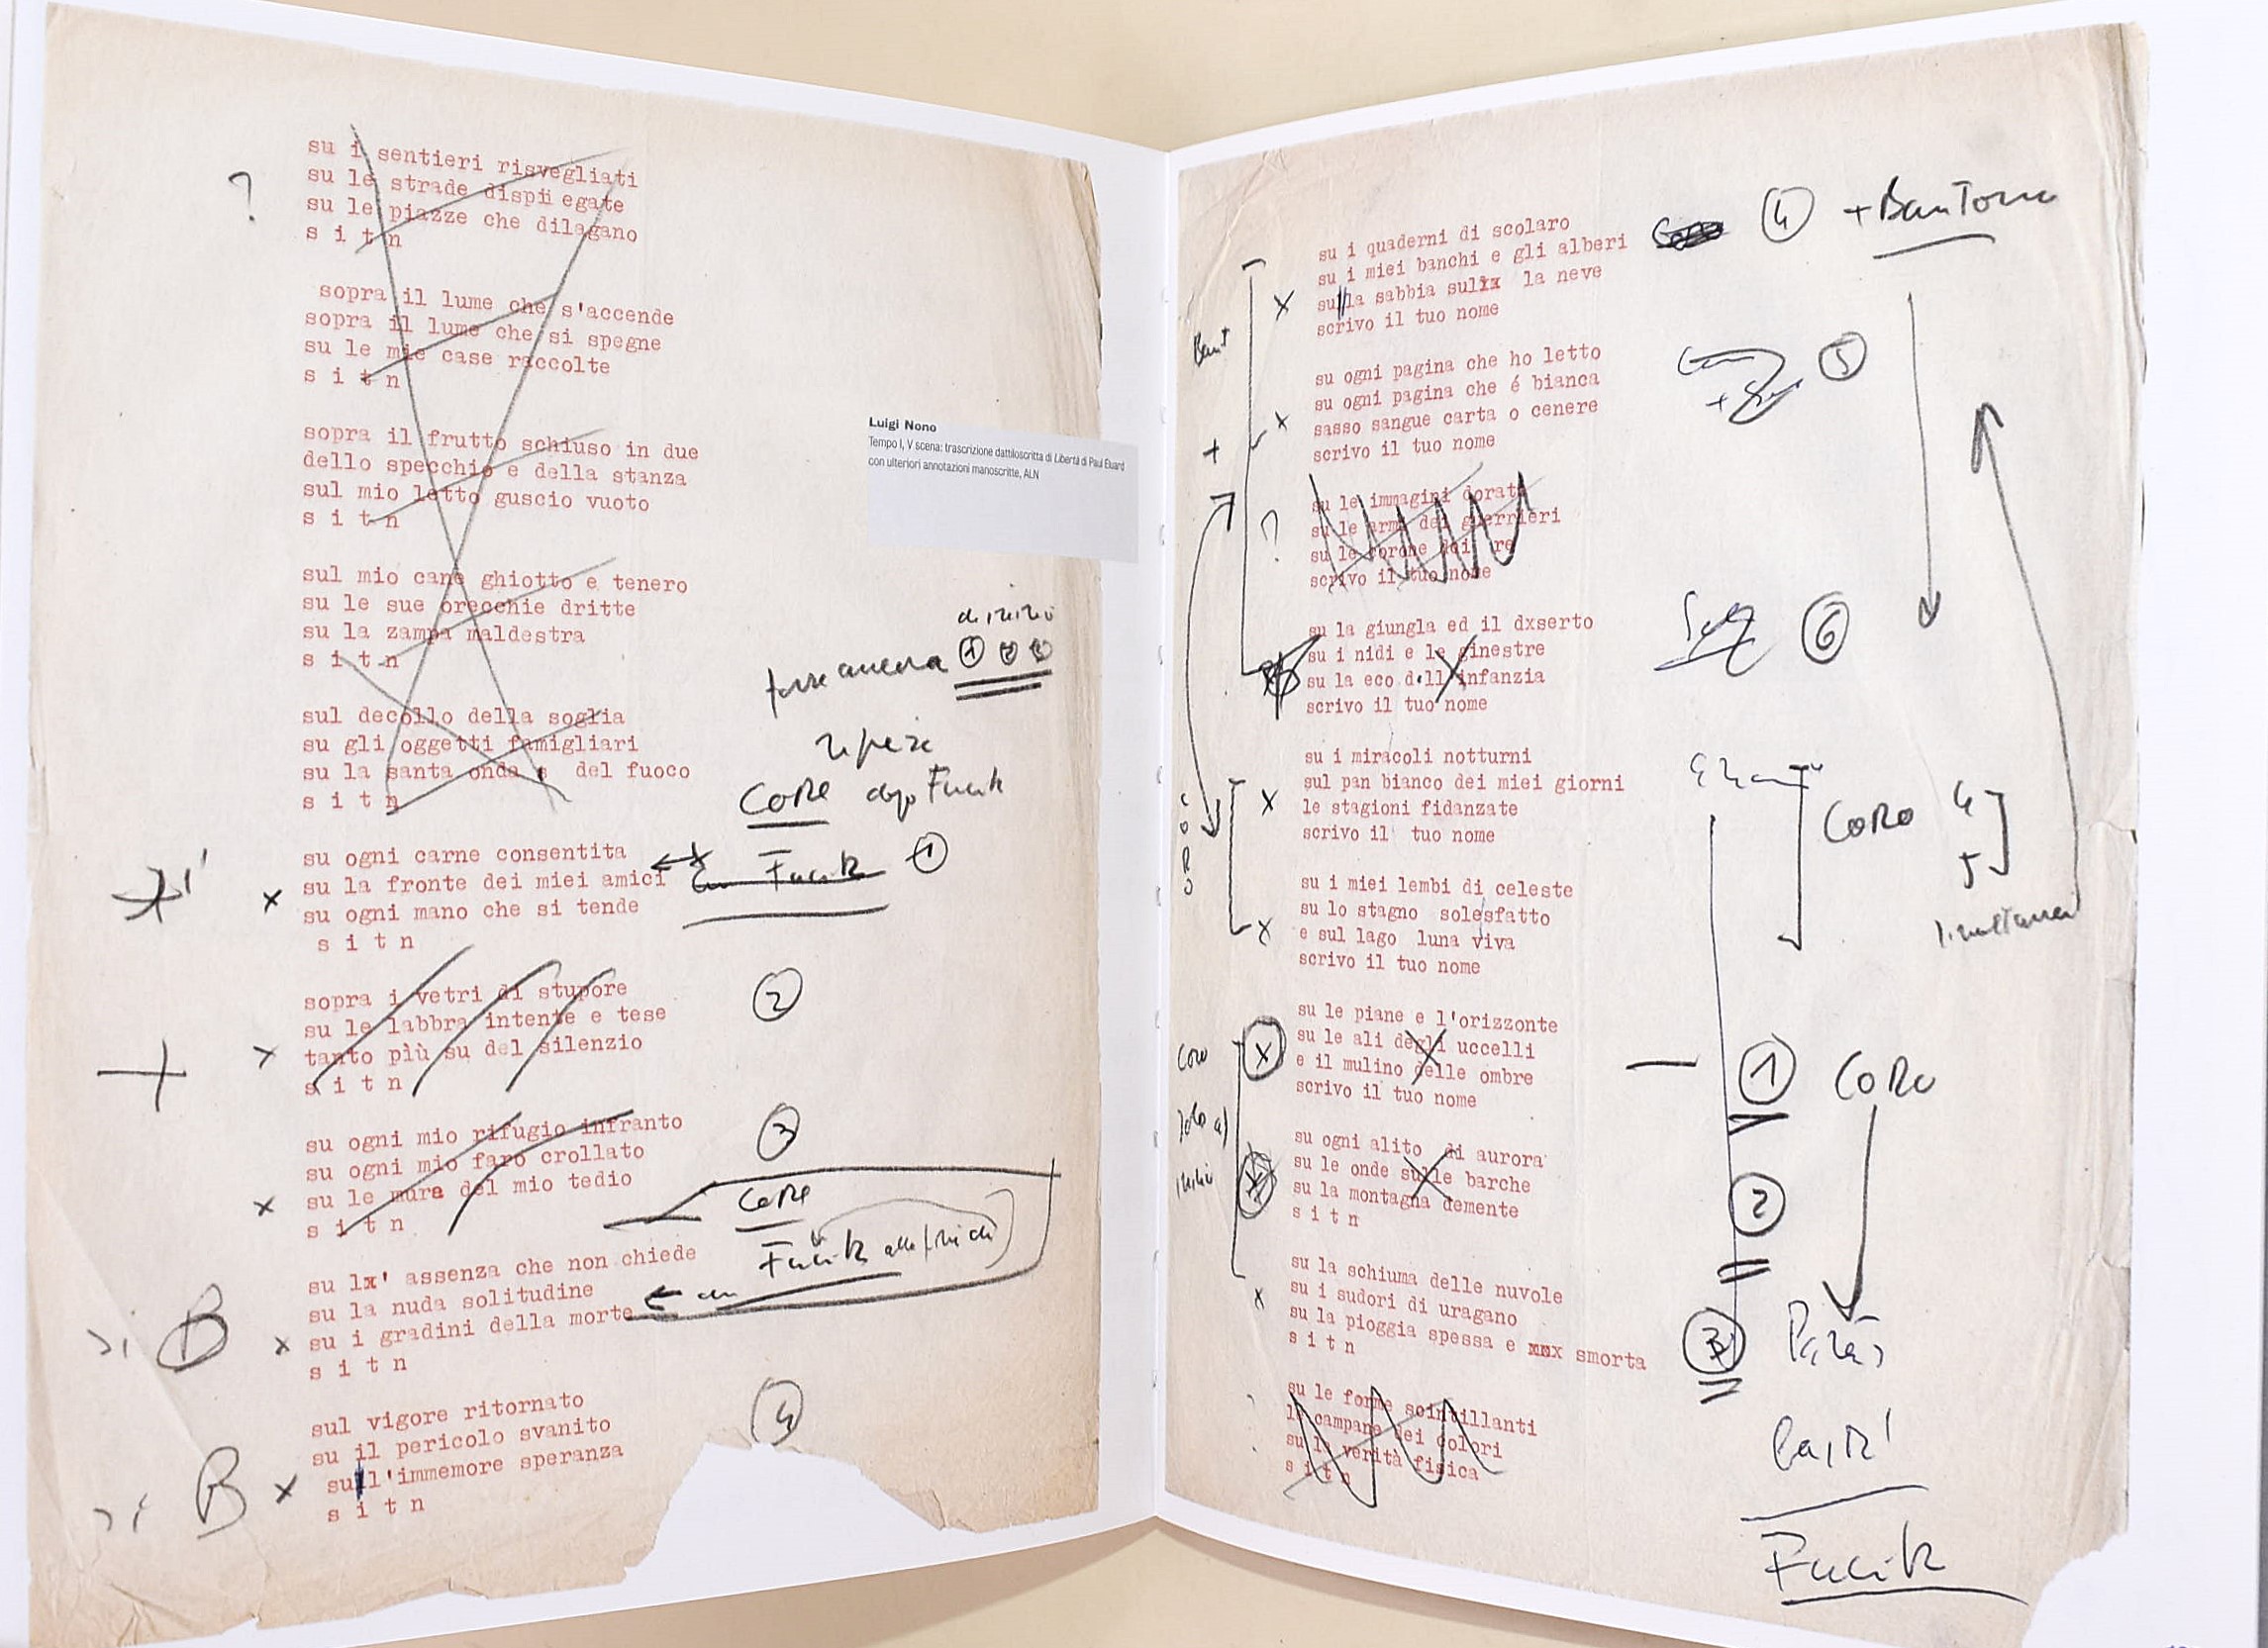 su i sentieri risvegliati
su le strade dispiiegate
su le piazze che dilagano
s i t n
sopra il lume che s'accende
sopra il lume che si spegne
su le mie case raccolte
s i t n
sopra il frutto schiuso in due
dello specchio e della stanza
sul mio letto guscio vuoto
s i t n
sul mio cane ghiotto e tenero
su le sue orecchie dritte
su la zampa maldestra
s i t n
sul decollo della soglia
su gli oggetti famigliari
su la santa onda del fuoco
s i t n
su ogni carne consentita
su la fronte dei miei amici
su ogni mano che si tende
s i t n
sopra i vetri di stupore
su le labbra intente e tese
tanto più su del silenzio
s i t n
su ogni mio rifugio infranto
su ogni mio faro crollato
su le mura del mio tedio
s i t n
su lx' assenza che non chiede
su la nuda solitudine
su i gradini della morte
s i t n
sul vigore ritornato
su il pericolo svanito
sull'immemore speranza
s i t n
?
si B
si B
forse ancora 1 2 3
CORE dopo Fucik
Fucik 1
2
3
CORE
Fucik
4
Luigi Nono
Tempo I, V scena: trascrizione dattiloscritta di Libertà di Paul Eluard
con ulteriori annotazioni manoscritte, ALN
su i quaderni di scolaro
su i miei banchi e gli alberi
sulla sabbia sulxx la neve
scrivo il tuo nome
su ogni pagina che ho letto
su ogni pagina che é bianca
sasso sangue carta o cenere
scrivo il tuo nome
su le immagini dorate
su le armi dei guerrieri
su le corone dei re
scrivo il tuo nome
su la giungla ed il dxserto
su i nidi e le ginestre
su la eco dell'infanzia
scrivo il tuo nome
su i miracoli notturni
sul pan bianco dei miei giorni
le stagioni fidanzate
scrivo il tuo nome
su i miei lembi di celeste
su lo stagno solesfatto
e sul lago luna viva
scrivo il tuo nome
su le piane e l'orizzonte
su le ali degli uccelli
e il mulino delle ombre
scrivo il tuo nome
su ogni alito di aurora
su le onde sulle barche
su la montagna demente
s i t n
su la schiuma delle nuvole
su i sudori di uragano
su la pioggia spessa e xxx smorta
s i t n
su le forme scintillanti
le campane dei colori
su la verità fisica
s i t n
Barit
?
CORO
Coro
4 + Baritono
5
6
CORO 4
5
simultanea
1 CORO
2
3
Fucik